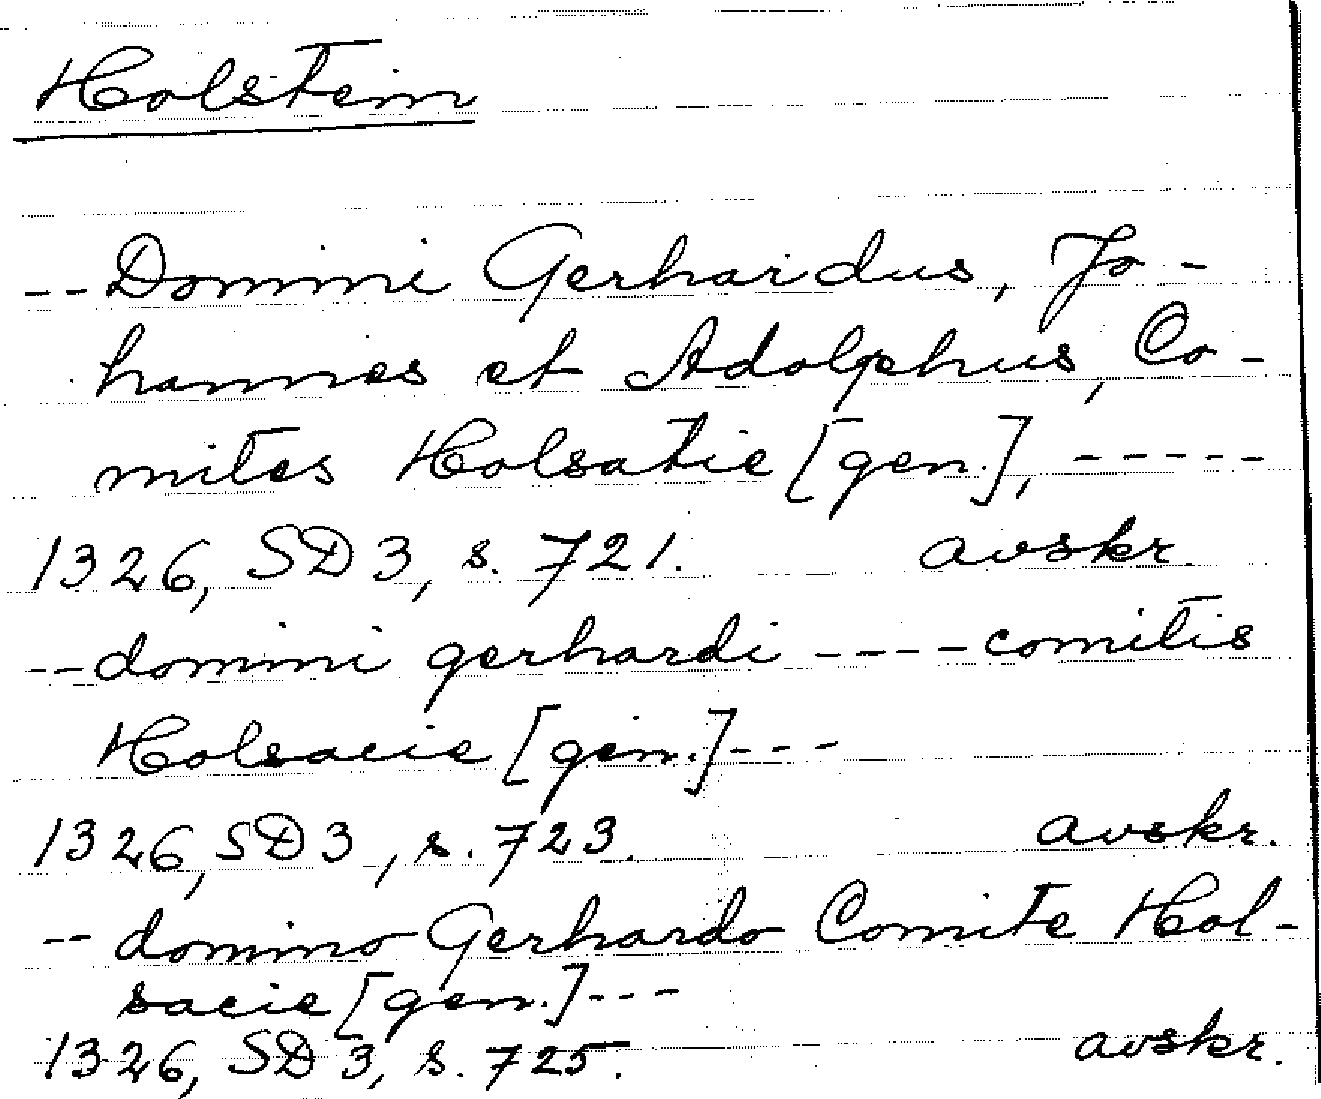 Holstein
--Domini Gerhardus, Jo-
hannes et Adolphus, Co-
mites Holsatie [gen.], -----
1326, SD 3, s. 721. avskr.
--domini gerhardi ----comitis
Holsacie [gen.]---
1326, SD 3, s. 723. avskr.
-- domino Gerhardo Comite Hol-
sacie [gen.]---
1326, SD 3, s. 725. avskr.